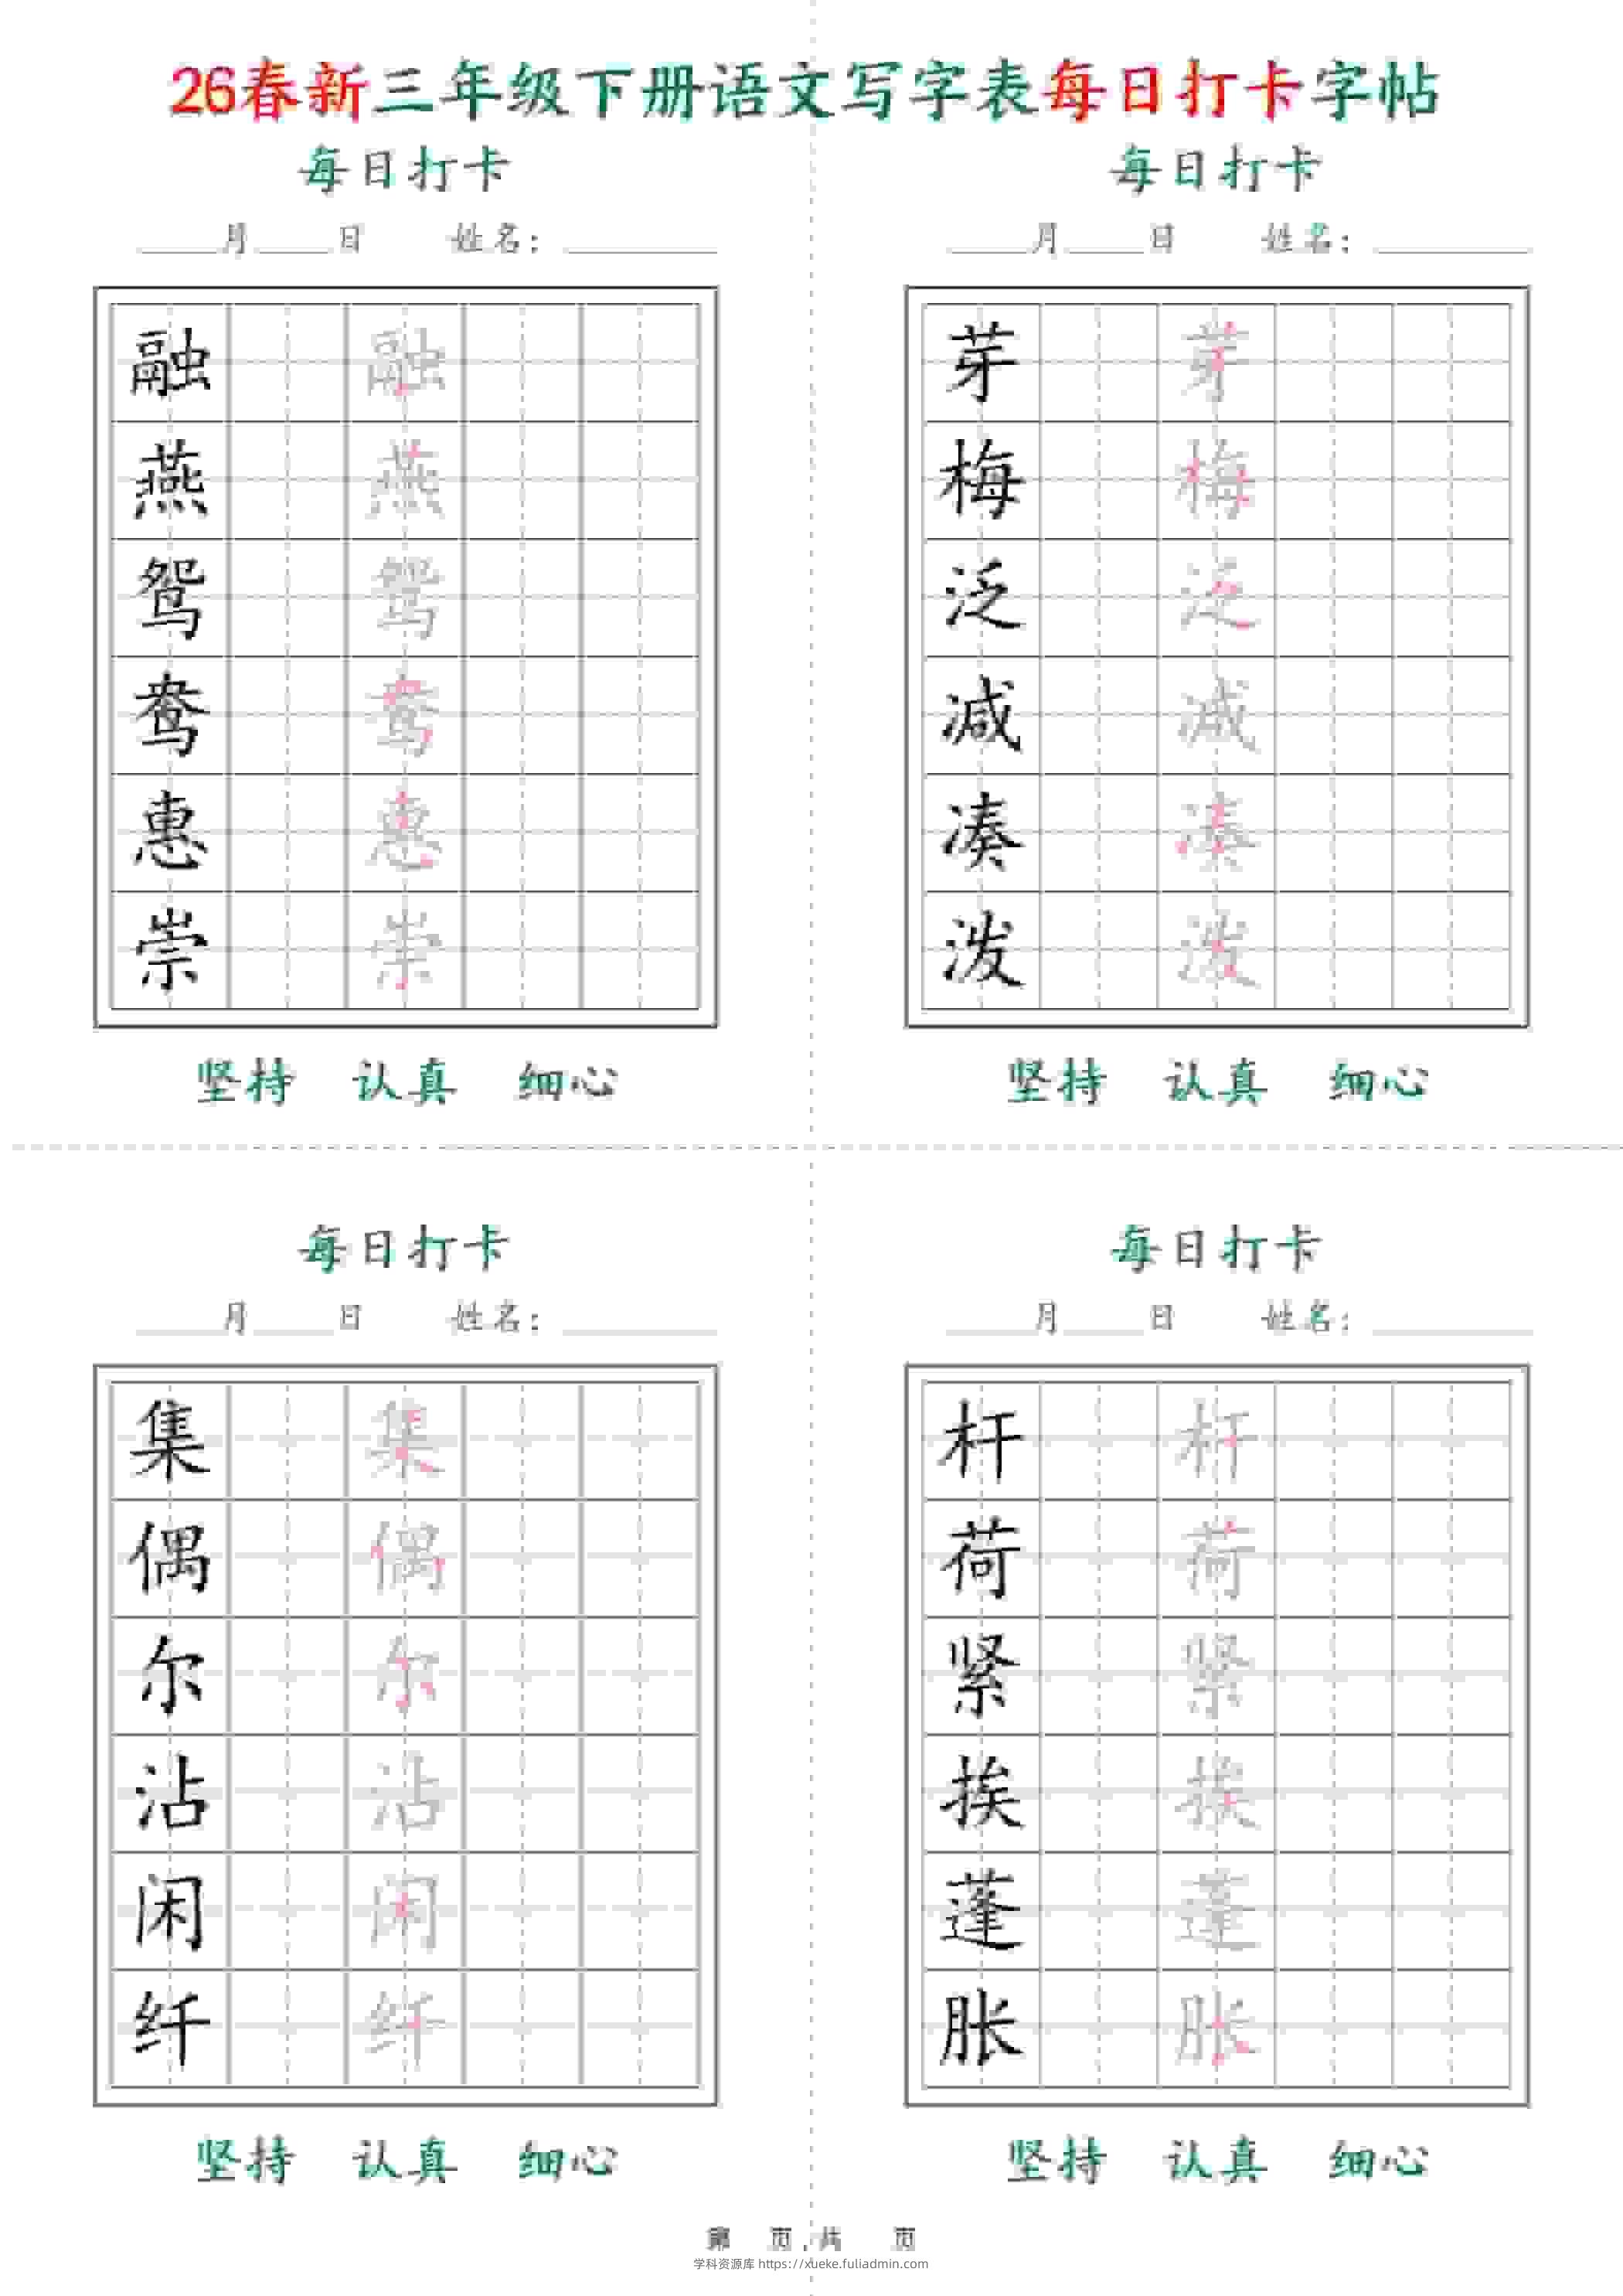 26春新三年级下册语文写字表每日打卡字帖
每日打卡
____月____日 姓名：________
融 融
燕 燕
鸳 鸳
鸯 鸯
惠 惠
崇 崇
坚持 认真 细心
每日打卡
____月____日 姓名：________
芽 芽
梅 梅
泛 泛
减 减
凑 凑
泼 泼
坚持 认真 细心
每日打卡
____月____日 姓名：________
集 集
偶 偶
尔 尔
沾 沾
闲 闲
纤 纤
坚持 认真 细心
每日打卡
____月____日 姓名：________
杆 杆
荷 荷
紧 紧
挨 挨
蓬 蓬
胀 胀
坚持 认真 细心
第 页,共 页
学科资源库 https://xueke.fuliadmin.com